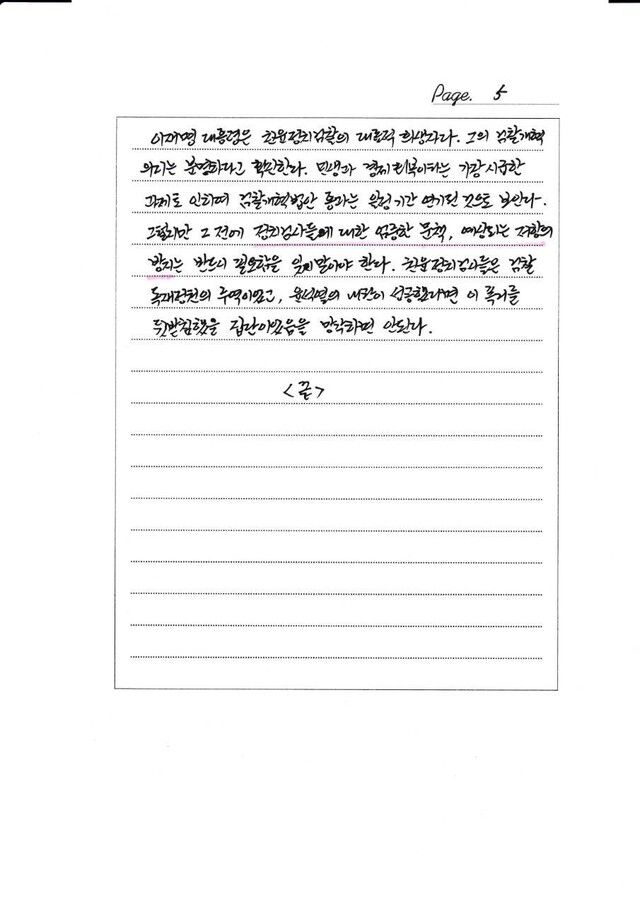 Page. 5
이재명 대통령은 친윤정치검찰의 대표적 희생자다. 그의 검찰개혁
의지는 분명하다고 확신한다. 민생과 경제회복이라는 가장 시급한
과제로 인하여 검찰개혁법안 통과는 일정기간 연기된 것으로 보인다.
그렇지만 그 전에 정치검사들에 대한 엄중한 문책, 예상되는 저항의
방지는 반드시 필요함을 잊지말아야 한다. 친윤정치검사들은 검찰
독재정권의 주역이었고, 윤석열의 내란이 성공했다면 이 폭거를
뒷받침했을 집단이었음을 망각하면 안된다.
<끝>